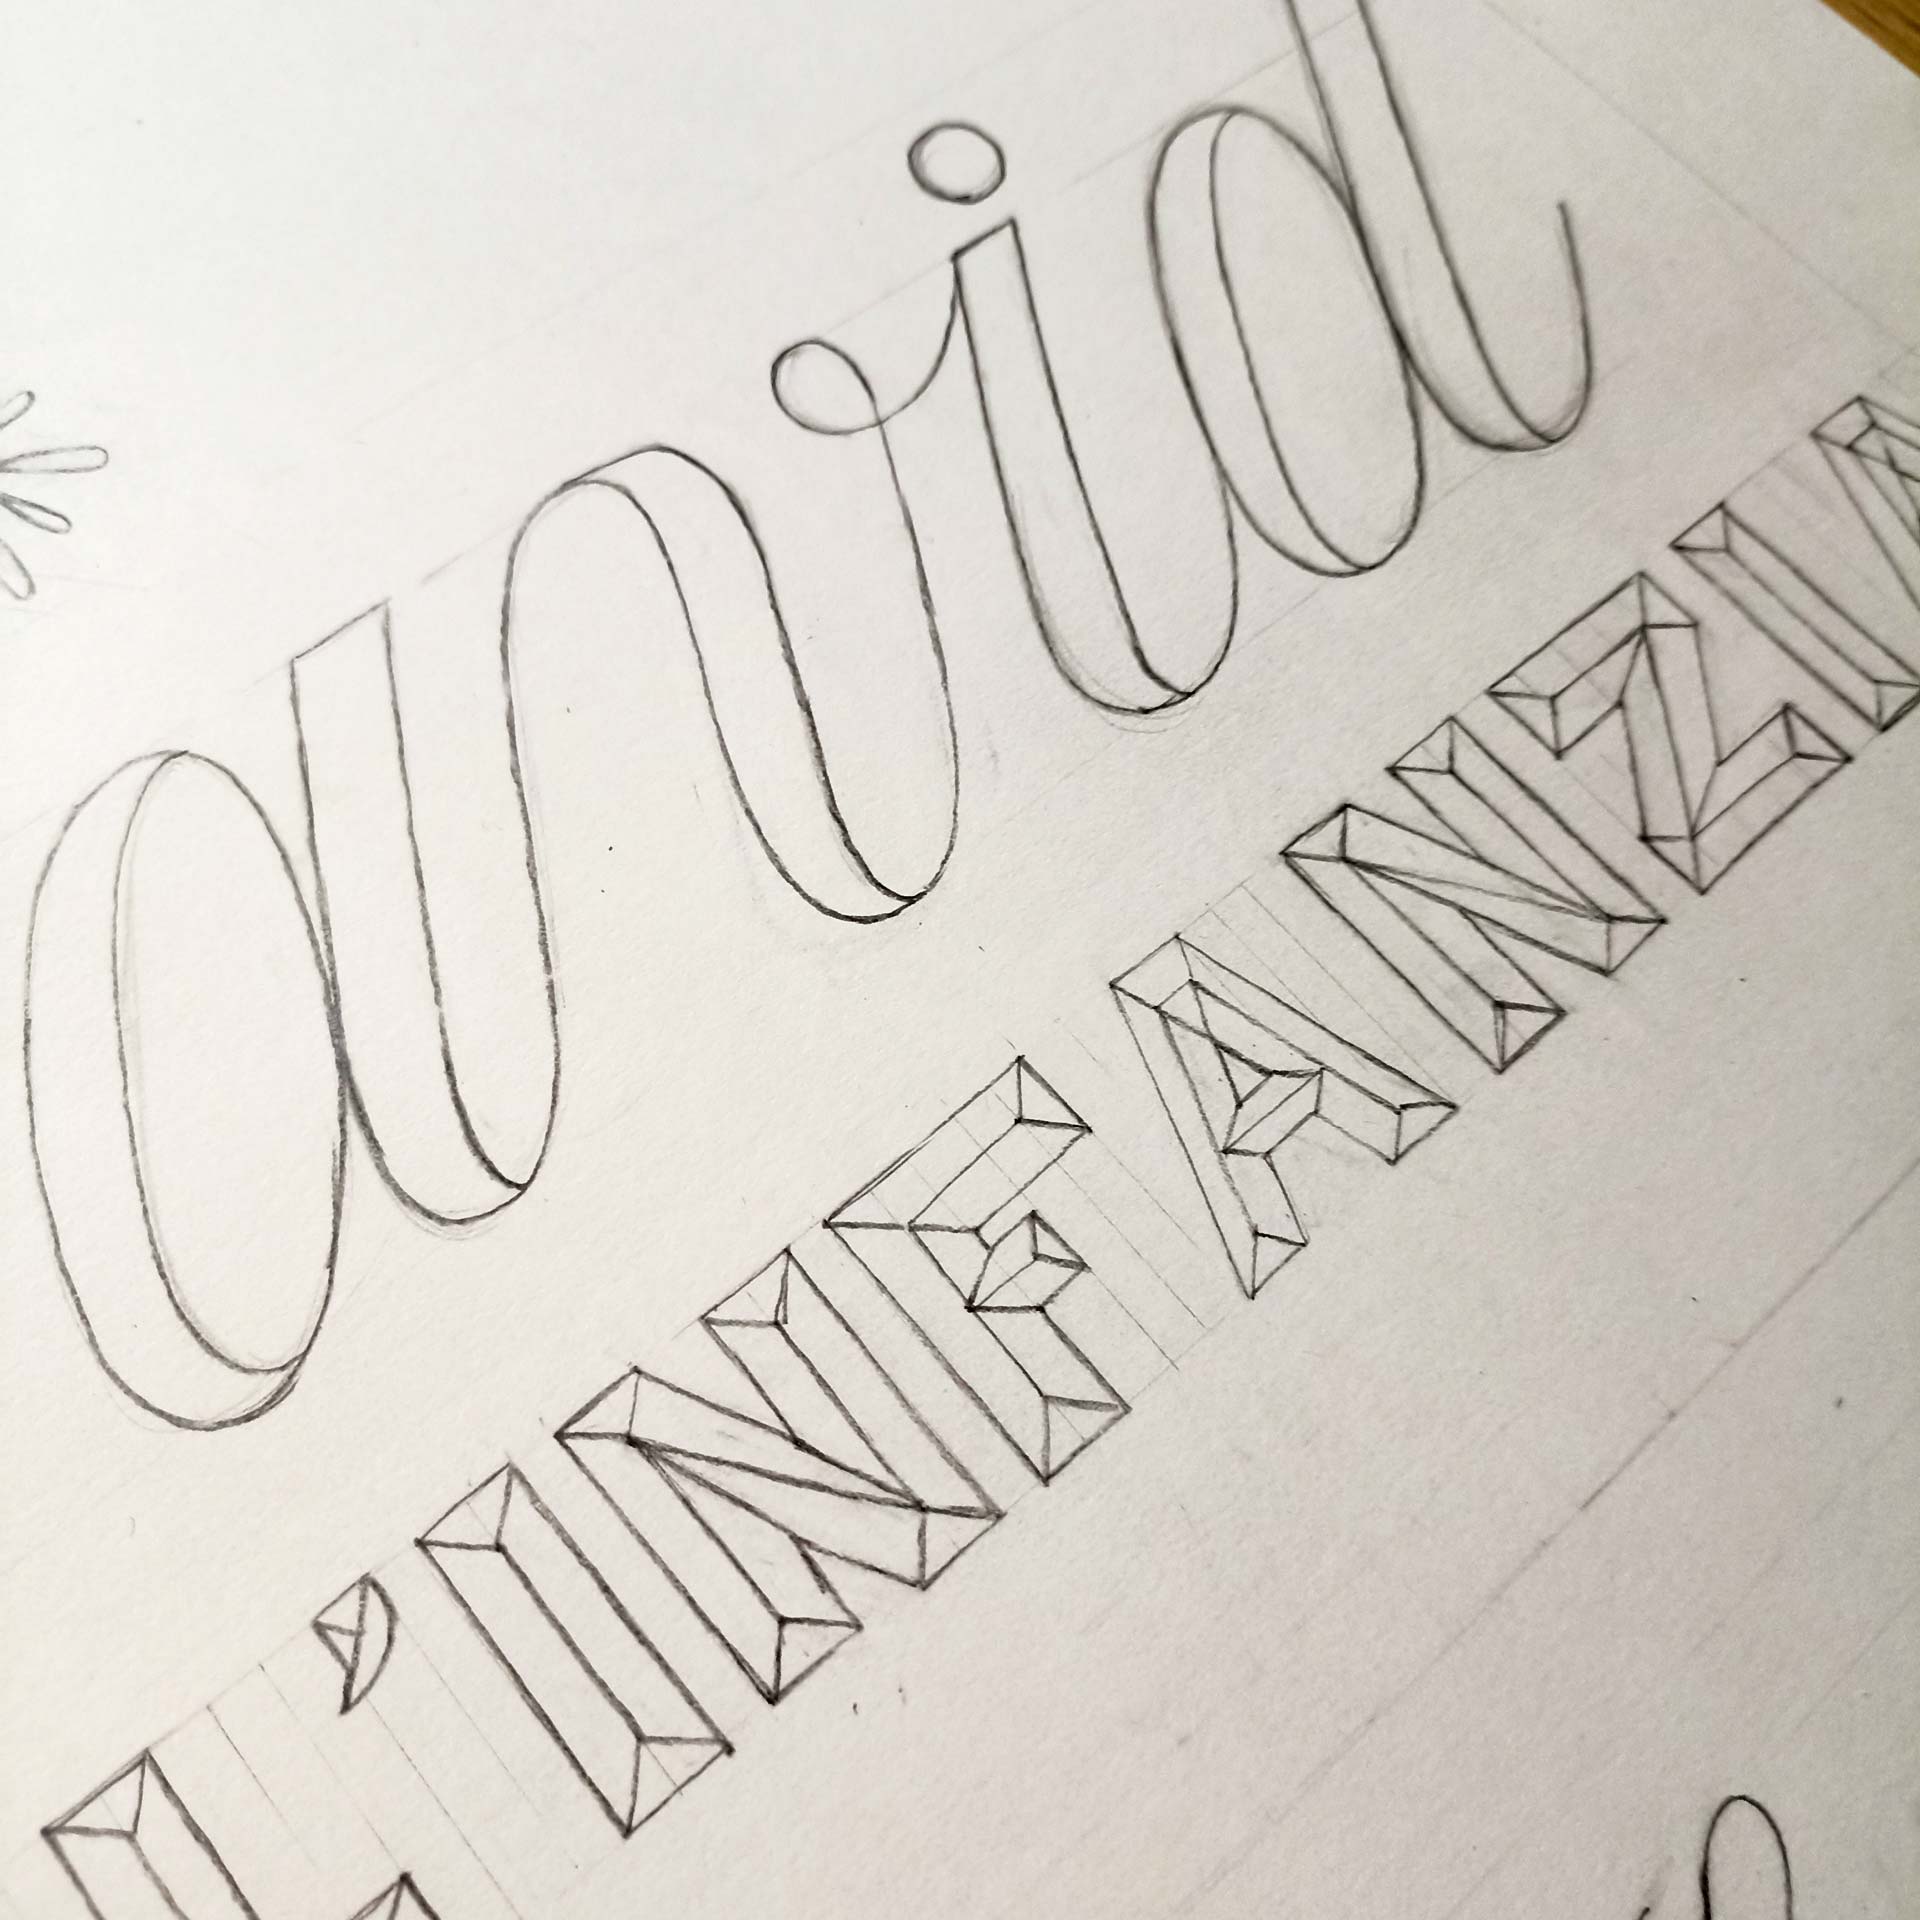 avid
L'INFANZIA